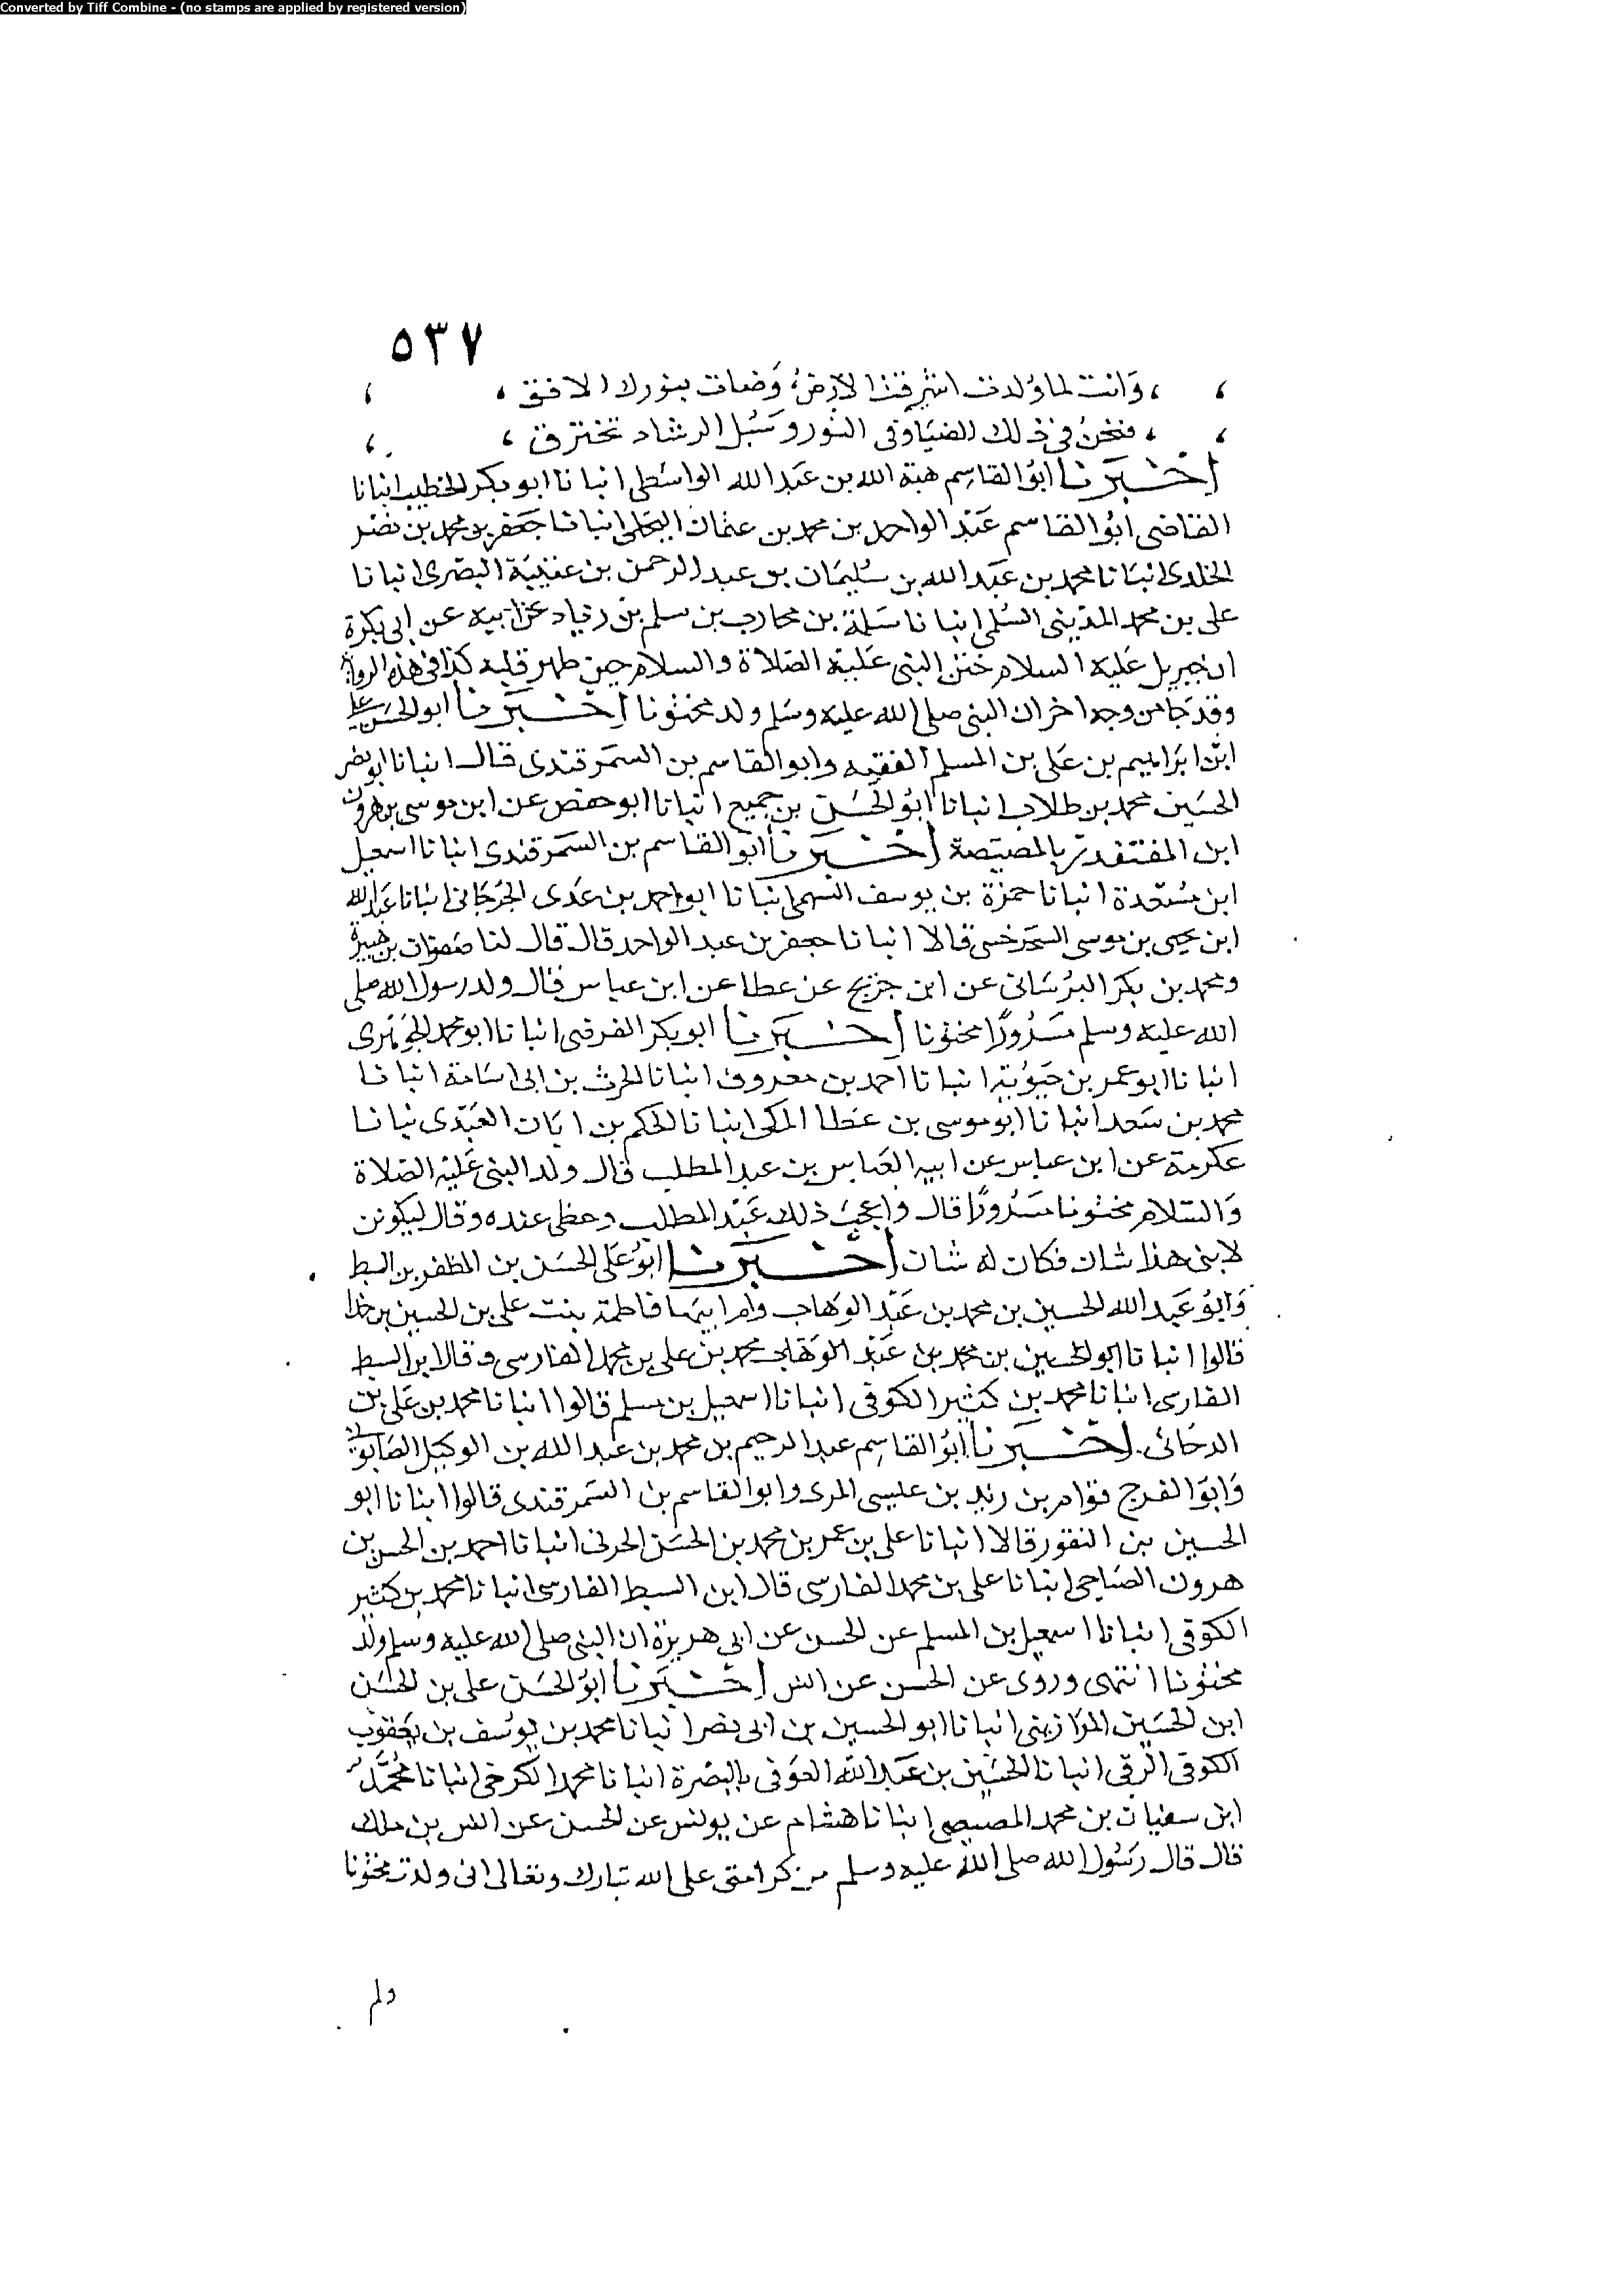 Converted by Tiff Combine - (no stamps are applied by registered version)
٥٣٧
، ، وَانت لما وُلدت اشرقت الارضُ وَضات بنورك الافق ، ،
، ، فنحنُ في ذلك الضيَا وفى النُور وسُبُل الرشاد تخترق ، ،
اخبَرنا ابوُ القاسِم هبة الله بن عبَد الله الواسَطى انبانا ابو بكر الخطيب انبانا
القاضى ابوُ القاسم عَبْد الواحد بن محمد بن عثمان البجَلى انبانا جَعفر بن محمد بن نصْر
الخلدى انبَانا محمد بن عبَد الله بن سُليمَان بن عبد الرحمن بن عنبسَة البصْرى انبانا
على بن محمد المدَينى السُلمى انبانا سَلمة بن محارب بن سلم بن زياد عن ابيه عن ابى بكرة
ان جبريل عَليه السلام ختن النبى عَليه الصَلاة والسلام حين طهر قلبه كذا فى هذه الرواية
وقد جَا من وجه اخر ان النبى صلى الله عليه وسَلم ولد مختونا اخبَرنا ابو الحسَن على
ابن ابرَاهيم بن عَلى بن المسلم الفقيه وابو القاسم بن السمَرقندى قالا انبانا ابو نصر
الحسَين محمد بن طلاب انبانا ابوُ الحسَين بن جميع انبانا ابو حفص عن ابن موسى بن هرون
ابن المقتدر بالمصيَصة اخبَرنا ابوُ القاسم بن السَمَرقندى انبانا اسمعيل
ابن مسْعَدة انبانا حمزة بن يوسف السهمى انبانا ابو احمد بن عدَى الجرُجَانى انبانا عبَد الله
ابن يحيى بن موسى السَرخسى قالا انبانا جعفر بن عبد الواحد قال قال لنا صَفوان بن هبيرة
ومحمد بن بكر البُرسَانى عن ابن جريج عن عطا عن ابن عباس قال ولد رسول الله صلى
الله عليه وسلم مَسرُورًا مختونا اخبَرنا ابو بكر الفرضى انبانا ابو محمد الجوَهرى
انبانا ابو عمر بن حيوُية انبانا احمد بن معروف انبانا الحرث بن ابى اسَامة انبانا
محمد بن سَعد انبانا ابو موسى بن عَطا المكى انبانا الحكم بن ابَان العَبَدى نبانا
عكرمة عن ابن عباس عن ابيه العَباس بن عبد المطلب قال ولد النبى عَليه الصَلاة
وَالسَلام مختونا مسَرُورًا قال واعجبَ ذلك عَبْد المطلب وحظى عنده وقال ليكونن
لابنى هذا شان فكان له شان اخبَرنا ابوُ عَلى الحسَن بن المظفر بن السبط
وَابوُ عَبد الله الحسين بن محمد بن عَبْد الوَهاب وام ابيهَا فاطمة بنت على بن الحسين بن جدا
قالوا انبانا ابو الحسين بن محمد بن عَبْد الوَهاب محمد بن على بن محمد الفارسى وقال ابن السبط
الفارسى انبانا محمد بن كثير الكوفى انبانا اسمعيل بن مسلم قالوا انبانا محمد بن عَلى بن
الدجَانى اخبَرنا ابوُ القاسِم عبد الرحيم بن محمد بن عَبد الله بن الوكيل الصَابونى
وَابوَ الفرج قوام بن زيد بن عيسى المرى وابو القاسم بن السَمرقندى قالوا انبانا ابو
الحسين بن النقور قالا انبانا على بن عمر بن محمد بن الحسَن الحربى انبانا احمد بن الحسن بن
هرون الصَباحى انبانا على بن محمد الفارسى قال ابن السبط الفارسى انبانا محمد بن كثير
الكوفى انبانا اسمعيل بن المسلم عن الحسن عن ابى هريرة ان النبى صلى الله عليه وسلم ولد
مختونا انتهى وروى عن الحسن عن انس اخبَرنا ابوُ الحسَن على بن الحسَن
ابن الحسَين الموَازينى انبانا ابو الحسين بن ابى نصر انبانا محمد بن يوُسف بن يَعقوب
الكوفى الرقى انبانا الحسَين بن عبَد الله العوَفى بالبصَرة انبانا محمد الكرخى انبانا مُحمَّدُ
ابن سفيان بن محمد المصيصى انبانا هشام عن يونس عن الحسن عن انس بن ملك
قال قال رَسُول الله صلى الله عليه وسلم من كرامتى على الله تبارك وتعالى انى ولدت مختونا
ولم